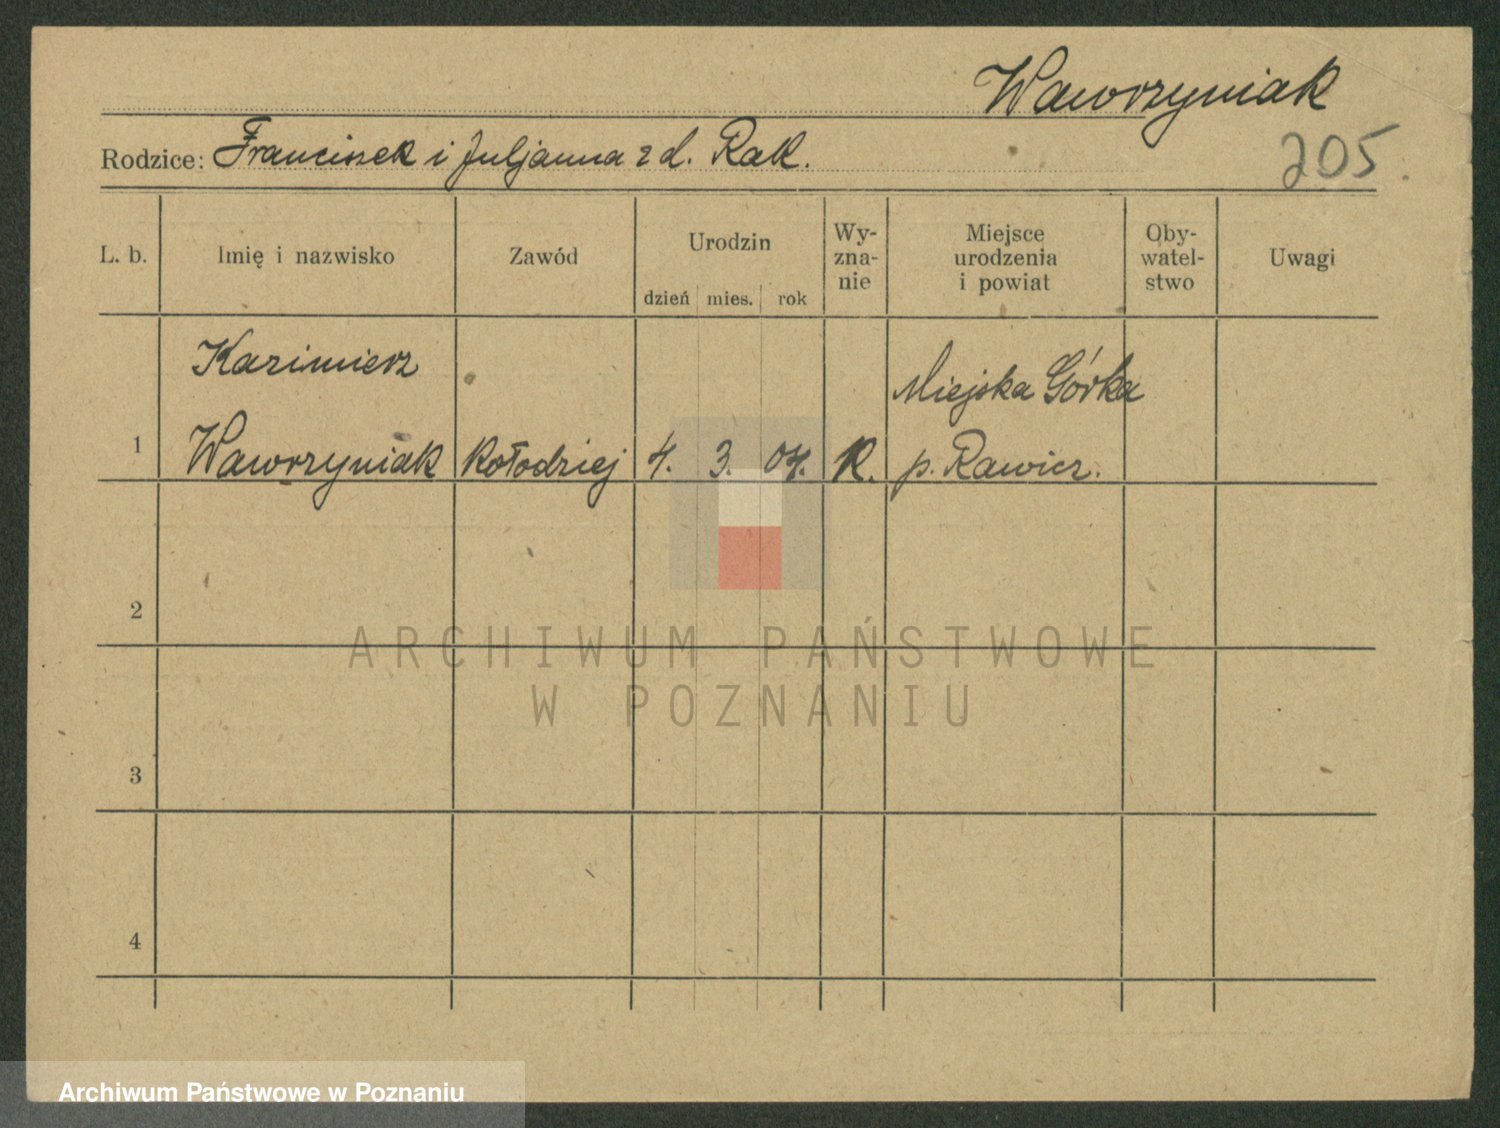 Wawrzyniak
Rodzice: Franciszek i Juljanna z d. Rak.
205
L. b.
Imię i nazwisko
Zawód
Urodzin
dzień mies. rok
Wy-
zna-
nie
Miejsce
urodzenia
i powiat
Oby-
watel-
stwo
Uwagi
Kazimierz
Miejska Górka
1 Wawrzyniak Kołodziej 4. 3. 04. R. p. Rawicz.
2
3
4
ARCHIWUM PAŃSTWOWE
W POZNANIU
Archiwum Państwowe w Poznaniu